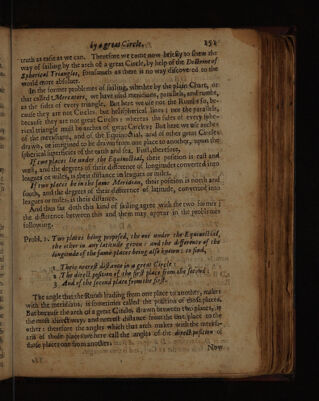 by a great Circle.
truth as easie as we can. Therefore we come now briefly to shew the
way of sailing by the arch of a great Circle, by help of the Doctrine of
Spherical Triangles, forasmuch as there is no way discovered to the
world more absolute.
In the former problemes of sailing, whether by the plain Chart, or
that called Mercators, we have used meridians, parallels, and rumbs,
as the sides of every triangle. But here we use not the Rumbs so, be-
cause they are not Circles, but helispherical lines: nor the parallels,
because they are not great Circles: whereas the sides of every sphe-
rical triangle must be arches of great Circles: But here we use arches
of the meridians, and of the Equinoctial, and of other great Circles
drawn, or imagined to be drawn from one place to another, upon the
spherical superficies of the earth and sea. First, therefore,
If two places lie under the Equinoctial, their position is east and
west, and the degrees of their difference of longitudes converted into
leagues or miles, is their distance in leagues or miles.
If two places be in the same Meridian, their position is north and
south, and the degrees of their difference of latitude, converted into
leagues or miles, is their distance.
And thus far doth this kind of sailing agree with the two former;
the difference between this and them may appear in the problemes
following.
Probl. 1. Two places being proposed, the one under the Equinoctial,
the other in any latitude given: and the difference of the
longitude of the same places being also known: to find,
1 Their neerest distance in a great Circle:
2 The direct position of the first place from the second:
3 And of the second place from the first.
The angle that the Rumb leading from one place to another, makes
with the meridians, is sometimes called the position of those places.
But because the arch of a great Circle, drawn between two places, is
the most direct way, and neerest distance from the one place to the
other: therefore the angles which that arch makes with the meridi-
ans of those places we here call the angles of the direct position of
those places one from another.
Now